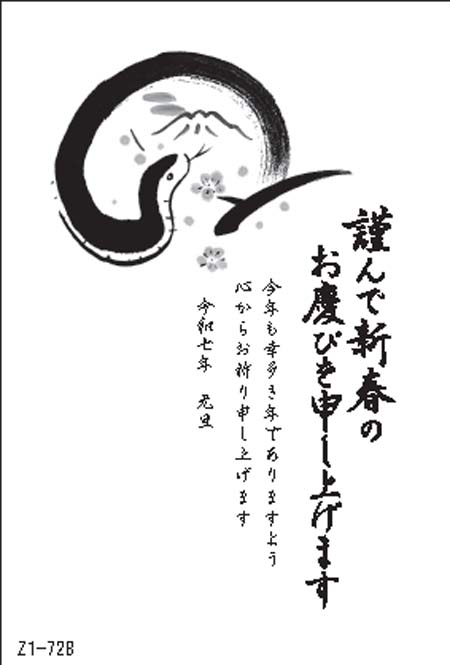 謹んで新春の
お慶びを申し上げます
今年も幸多き年でありますよう
心からお祈り申し上げます
令和七年　元旦
Z1-72B